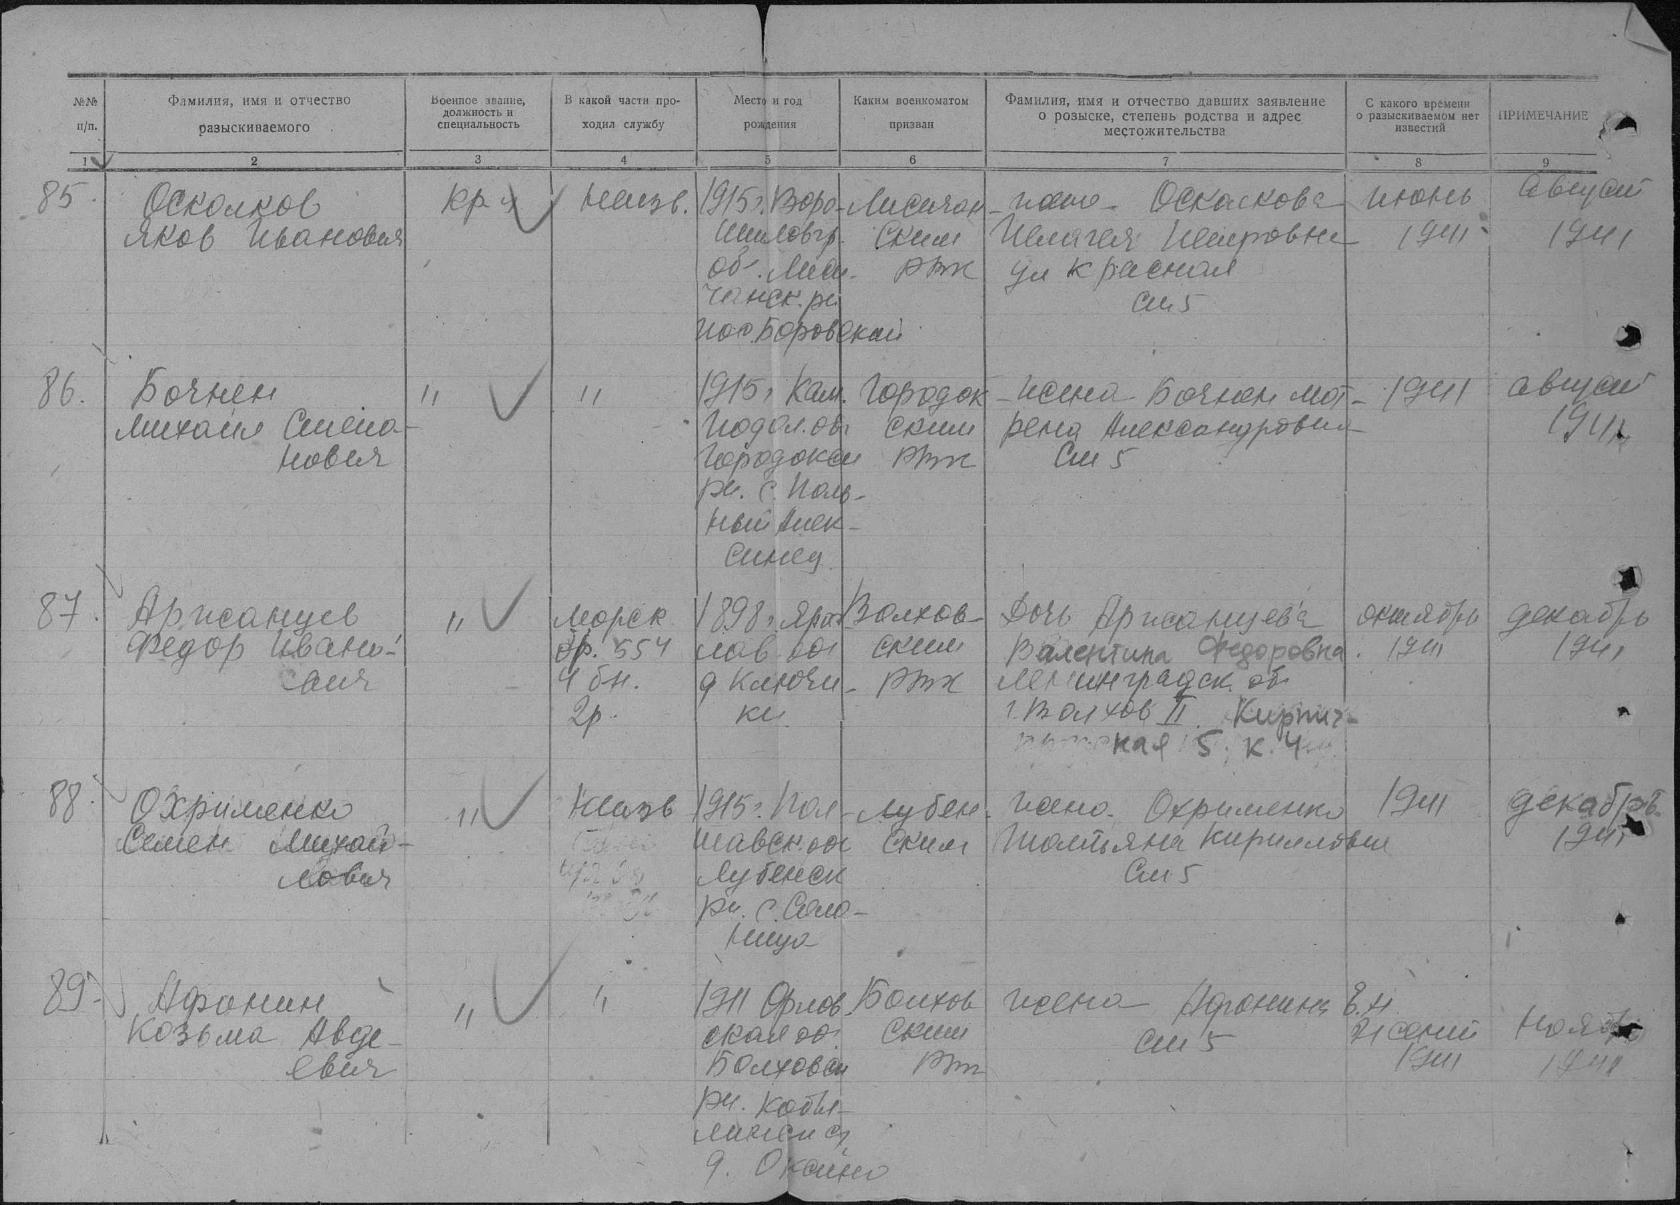 №№ п/п.
Фамилия, имя и отчество разыскиваемого
Военное звание, должность и специальность
В какой части проходил службу
Место и год рождения
Каким военкоматом призван
Фамилия, имя и отчество давших заявление о розыске, степень родства и адрес местожительства
С какого времени о разыскиваемом нет известий
ПРИМЕЧАНИЕ
1 2 3 4 5 6 7 8 9
85.
Осколков
Яков Иванович
кр-ц
Неизв.
1915г. Воро-
шиловгр.
об. Лиси-
чанск. рн
пос. Боровской
Лисичан-
ским
РВК
жена Оскаскова
Пелагея Петровна
ул Красная
см 5
июнь
1941
август
1941
86.
Бочнен
Михаил Степа-
нович
"
"
1915г Кам.
Подол. об
Городокск
рн. с. Поль-
ный Алек-
синец
Городок-
ским
РВК
жена Бочнен Мот-
рена Александровна
См 5
1941
август
1941
87.
Аржанцев
Федор Ивано-
вич
"
Морск
бр. 554
4 бн.
2р.
1898г Яро
слав. об
д Ключи-
ки
Волхов-
ским
РВК
Дочь Аржанцева
Валентина Федоровна
Ленинградск. об
г. Волхов II. Кирпич-
ная 5. к. 4
октябрь
1941
декабрь
1941
88.
Охрименко
Семен Михай-
лович
"
Неизв
1915г. Пол-
тавск. об
Лубенск
рн. с. Соло-
ница
Лубен-
ским
жена. Охрименко
Татьяна Кирилловна
См 5
1941
декабрь
1941
89.
Афонин
Козьма Авде-
евич
"
"
1911 Орлов
ская об.
Болховск
рн.
д.
Болхов
ским
РВК
жена Афонина Е.Н.
см 5
1941
Ноябрь
1941